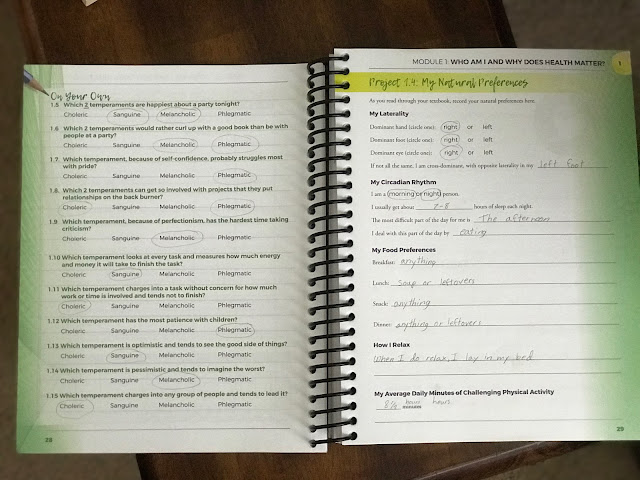 On Your Own
1.5 Which 2 temperaments are happiest about a party tonight?
Choleric Sanguine Melancholic Phlegmatic
1.6 Which 2 temperaments would rather curl up with a good book than be with
people at a party?
Choleric Sanguine Melancholic Phlegmatic
1.7 Which temperament, because of self-confidence, probably struggles most
with pride?
Choleric Sanguine Melancholic Phlegmatic
1.8 Which 2 temperaments can get so involved with projects that they put
relationships on the back burner?
Choleric Sanguine Melancholic Phlegmatic
1.9 Which temperament, because of perfectionism, has the hardest time taking
criticism?
Choleric Sanguine Melancholic Phlegmatic
1.10 Which temperament looks at every task and measures how much energy
and money it will take to finish the task?
Choleric Sanguine Melancholic Phlegmatic
1.11 Which temperament charges into a task without concern for how much
work or time is involved and tends not to finish?
Choleric Sanguine Melancholic Phlegmatic
1.12 Which temperament has the most patience with children?
Choleric Sanguine Melancholic Phlegmatic
1.13 Which temperament is optimistic and tends to see the good side of things?
Choleric Sanguine Melancholic Phlegmatic
1.14 Which temperament is pessimistic and tends to imagine the worst?
Choleric Sanguine Melancholic Phlegmatic
1.15 Which temperament charges into any group of people and tends to lead it?
Choleric Sanguine Melancholic Phlegmatic
28
MODULE 1: WHO AM I AND WHY DOES HEALTH MATTER? 1
Project 1.4: My Natural Preferences
As you read through your textbook, record your natural preferences here.
My Laterality
Dominant hand (circle one): right or left
Dominant foot (circle one): right or left
Dominant eye (circle one): right or left
If not all the same, I am cross-dominant, with opposite laterality in my left foot
My Circadian Rhythm
I am a (morning or night) person.
I usually get about 7-8 hours of sleep each night.
The most difficult part of the day for me is The afternoon
I deal with this part of the day by eating
My Food Preferences
Breakfast: anything
Lunch: Soup or leftovers
Snack: anything
Dinner: anything or leftovers
How I Relax
When I do relax, I lay in my bed
My Average Daily Minutes of Challenging Physical Activity
hours
minutes
29